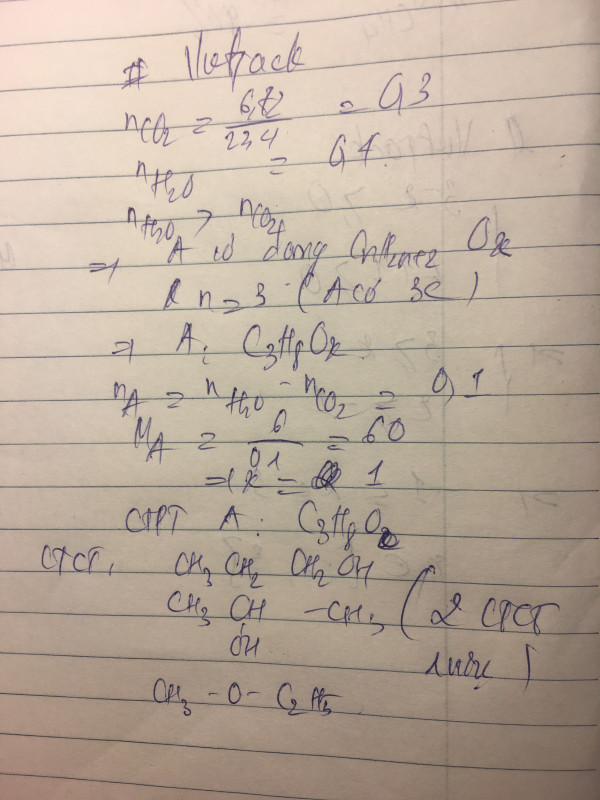 # Vutrack
nCO2 = 6,72/22,4 = 0,3
nH2O = 0,4
nH2O > nCO2
=> A có dạng CnH2n+2 Ox
n = 3 (A có 3C)
=> A: C3H8Ox
nA = nH2O - nCO2 = 0,1
MA = 6/0,1 = 60
=> x = 1
CTPT A: C3H8O
CTCT: CH3 CH2 CH2 OH
CH3 CH - CH3 ( 2 CTCT
OH
CH3 - O - C2H5